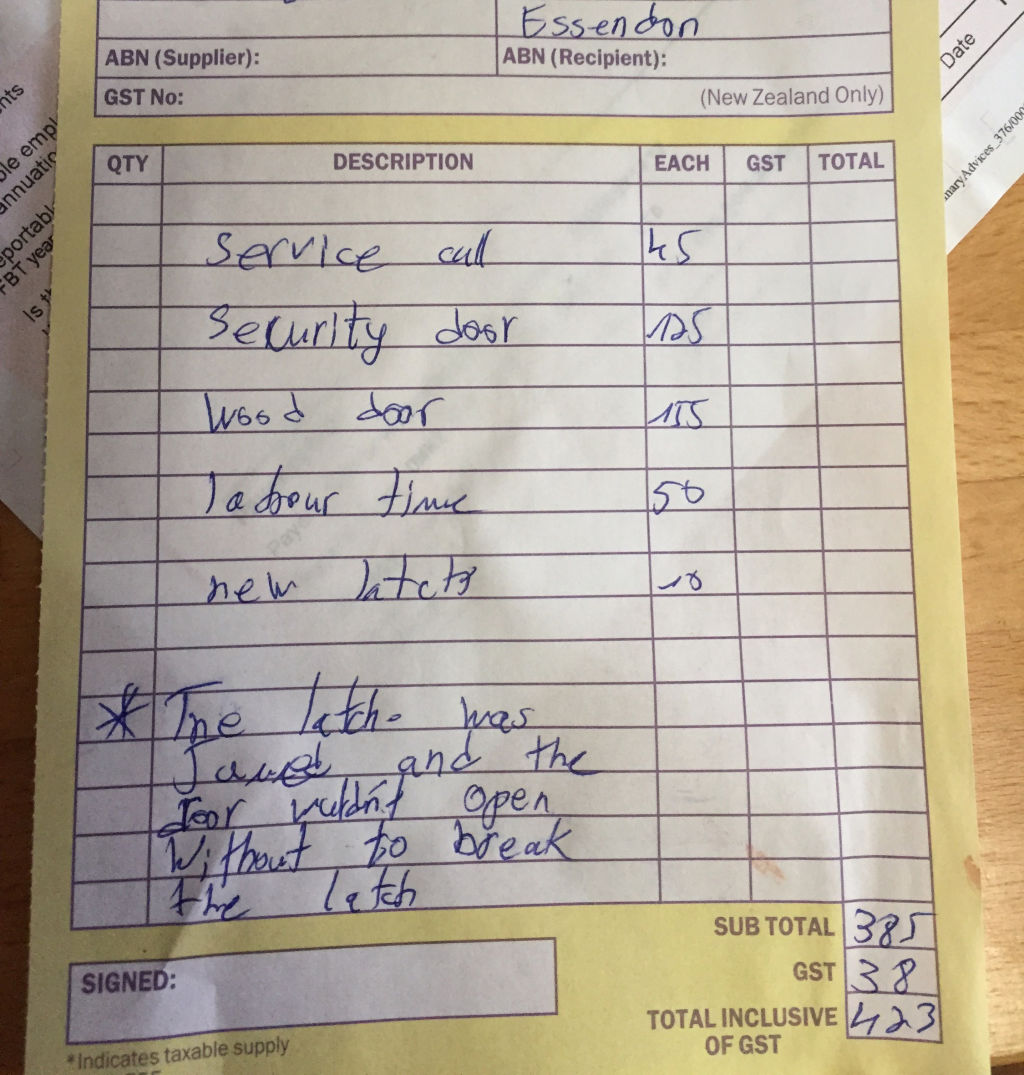 Essendon
ABN (Supplier): ABN (Recipient):
GST No: (New Zealand Only)
QTY DESCRIPTION EACH GST TOTAL
Service call 45
Security door 125
Wood door 155
labour time 50
new latch 10
* The latch was
Jamed and the
door vuldn't open
Without to break
the latch
SUB TOTAL 385
GST 38
TOTAL INCLUSIVE 423
OF GST
SIGNED:
*Indicates taxable supply
Date
Is
FBT year